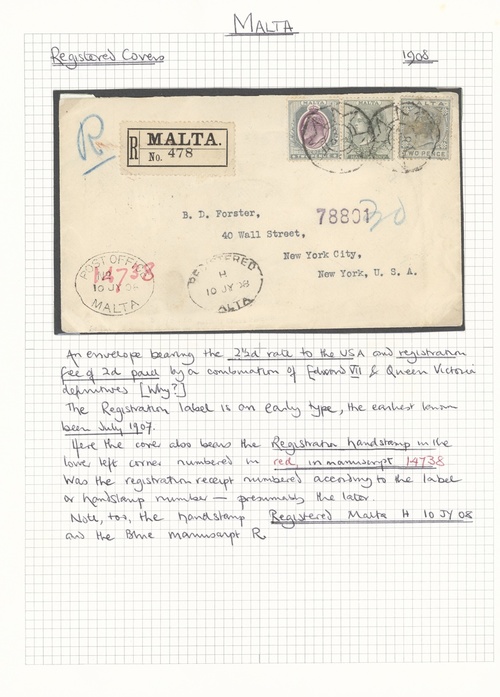 MALTA
Registered Covers 1908
R
R MALTA.
No. 478
MALTA
MALTA
MALTA
TWO PENCE
B. D. Forster,
78801
40 Wall Street,
New York City,
New York, U. S. A.
POST OFFICE
14738
10 JY 08
MALTA
REGISTERED
H
10 JY 08
MALTA
An envelope bearing the 2½d rate to the USA and registration
fee of 2d paid by a combination of Edward VII & Queen Victoria
definitives [Why?]
The Registration label is an early type, the earliest known
been July 1907.
Here the cover also bears the Registration handstamp in the
lower left corner numbered in red, in manuscript 14738
Was the registration receipt numbered according to the label
or handstamp number — presumably the later.
Note, too, the handstamp Registered Malta H 10 JY 08
and the Blue manuscript R